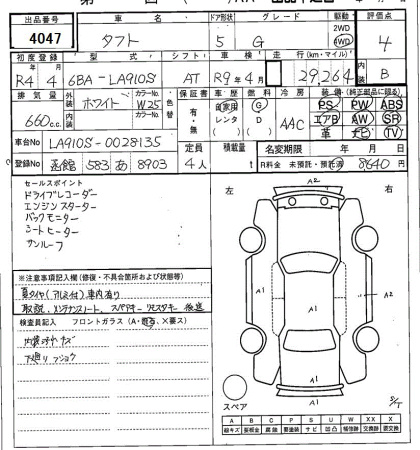 出品番号 車名 ドア形状 グレード 駆動 評価点
4047 タフト 5 G 2WD 4WD 4
初度登録 型式 シフト 車検 走行(km・マイル) 内装
R4 4 6BA-LA910S AT R9年4月 29,264 B
排気量 外装 ホワイト カラーNo. W25 色替 保証書 有・無 車歴 自家用 レンタ 燃料 G D 冷房 AAC 装備(純正部品に限る)
660c.c. 内装 カラーNo. PS PW ABS
エアB AW SR
革 ナビ TV
車台No LA910S-0028135
登録No 函館 583 あ 8903 定員 4人 積載量 t 名変期限 年 月 日
R料金 未預託・預託済 8640円
セールスポイント
ドライブレコーダー
エンジンスターター
バックモニター
シートヒーター
サンルーフ
左 右
A2
A1
A1
A2
A1
A1
スペア
S/T
※注意事項記入欄(修復・不具合箇所および状態等)
夏タイヤ(アルミ付)車内有り
取説、メンテナンスノート、スペアキー 後送
検査員記入 フロントガラス(A・飛石・X要ス)
内装 キズ
下廻り
A B C P S U W X XX
線キズ 要板金 腐食 要塗装 サビ 凹凸 補修跡 交換跡 要交換